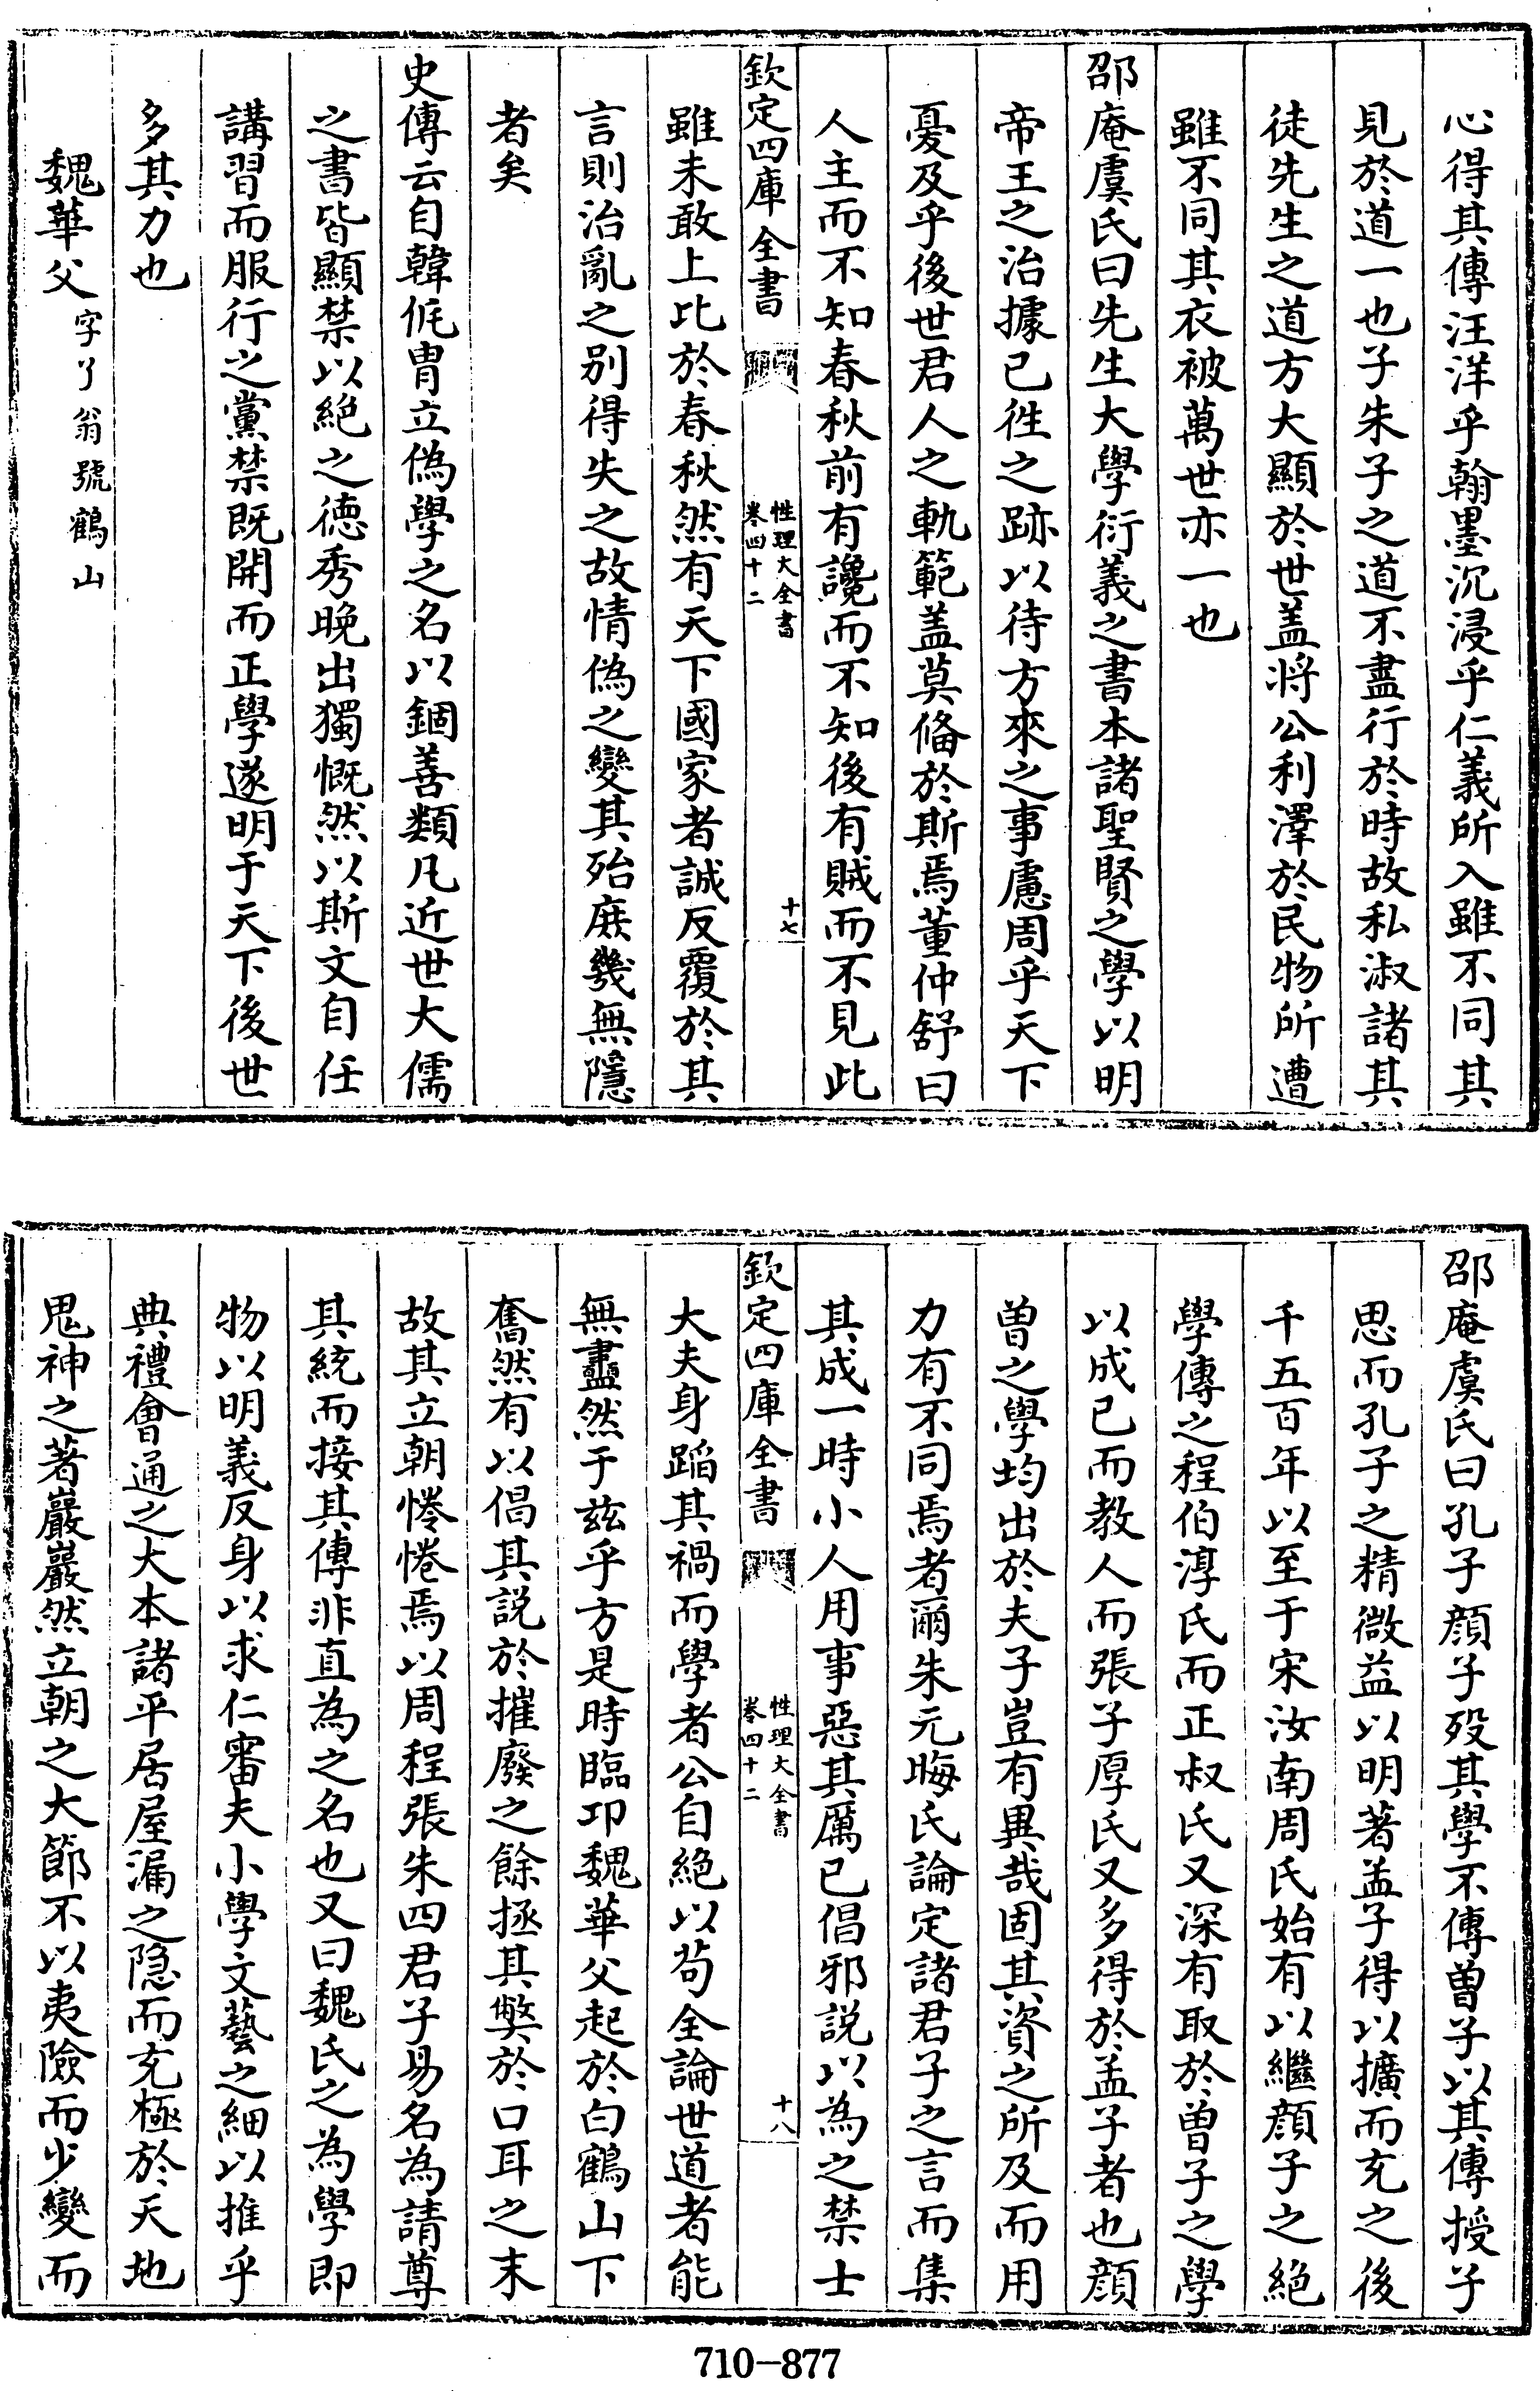 心得其傳汪洋乎翰墨沉浸乎仁義所入雖不同其
見於道一也子朱子之道不盡行於時故私淑諸其
徒先生之道方大顯於世盖將公利澤於民物所遭
雖不同其衣被萬世亦一也
邵庵虞氏曰先生大學衍義之書本諸聖賢之學以明
帝王之治據已徃之跡以待方來之事慮周乎天下
憂及乎後世君人之軌範盖莫俻於斯焉董仲舒曰
人主而不知春秋前有讒而不知後有賊而不見此
欽定四庫全書
性理大全書
卷四十二
十七
雖未敢上比於春秋然有天下國家者誠反覆於其
言則治亂之别得失之故情偽之變其殆庶幾無隱
者矣
史傳云自韓侂胄立偽學之名以錮善類凡近世大儒
之書皆顯禁以絶之德秀晚出獨慨然以斯文自任
講習而服行之黨禁既開而正學遂明于天下後世
多其力也
魏華父字了翁號鶴山
邵庵虞氏曰孔子顔子殁其學不傳曽子以其傳授子
思而孔子之精微益以明著孟子得以擴而充之後
千五百年以至于宋汝南周氏始有以繼顔子之絶
學傳之程伯淳氏而正叔氏又深有取於曽子之學
以成已而教人而張子厚氏又多得於孟子者也顔
曽之學均出於夫子豈有異哉固其資之所及而用
力有不同焉者爾朱元晦氏論定諸君子之言而集
其成一時小人用事惡其厲已倡邪說以為之禁士
欽定四庫全書
性理大全書
卷四十二
十八
大夫身蹈其禍而學者公自絶以茍全論世道者能
無盡然于兹乎方是時臨邛魏華父起於白鶴山下
奮然有以倡其説於摧廢之餘拯其獘於口耳之末
故其立朝惓惓焉以周程張朱四君子易名為請尊
其統而接其傳非直為之名也又曰魏氏之為學即
物以明義反身以求仁審夫小學文藝之細以推乎
典禮會通之大本諸平居屋漏之隐而充極於天地
鬼神之著巖巖然立朝之大節不以夷險而少變而
710-877